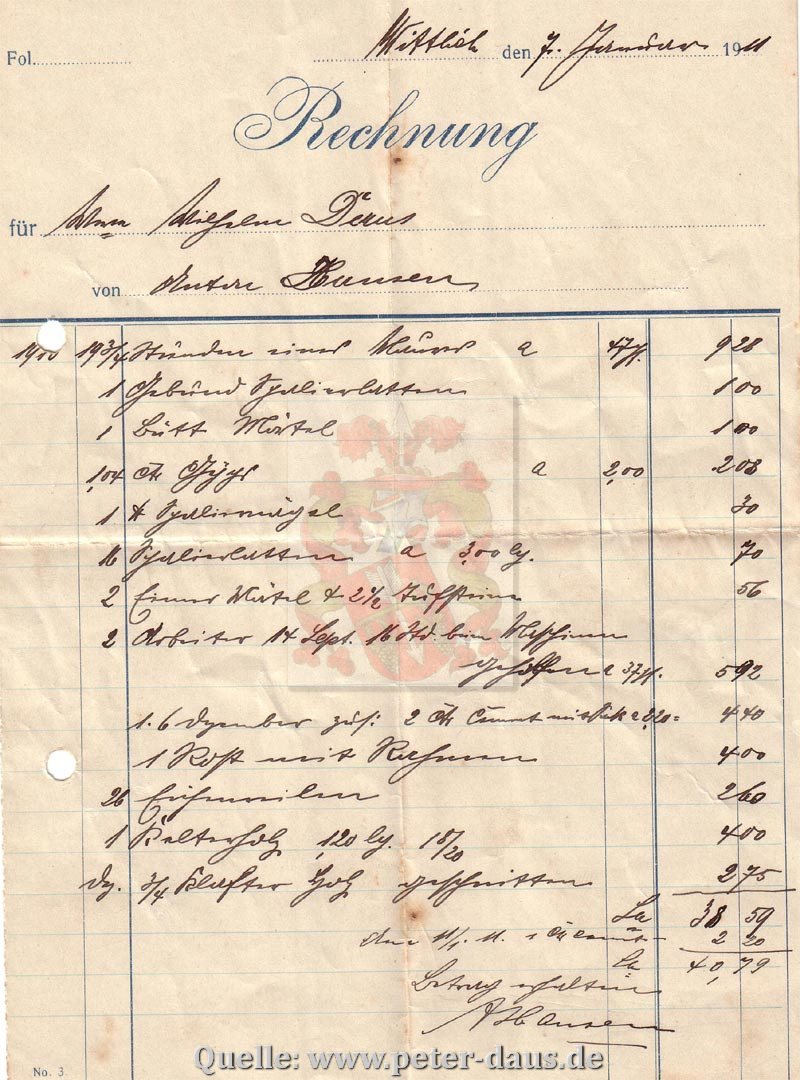 Fol. Wittlich den 7. Januar 1911
Rechnung
für Wilhelm Daus
von Anton Hansen
1910 19 3/4 Stunden eines Maurers a 47 Pf. 9 28
1 Gebund Spalierlatten 1 00
1 Bütt Mörtel 1 00
1,04 Ctr Gyps a 2,00 2 08
1 Spaliernägel 30
16 Spalierlatten a 3,00 lg. 70
2 Eimer Mörtel & 2 1/2 Tuffsteine 56
2 Arbeiter 14 Sept. 16 Std. beim
geholfen a 37 Pf. 5 92
1. 6 Dezember zus: 2 Ctr Cement mit Sack a 2,20 = 4 40
1 Rost mit Rahmen 4 00
26 2 60
1 Kelterholz 1,20 lg. 18/20 4 00
Dez. 3/4 Klafter Holz geschnitten 2 75
Sa 38 59
den 11/1. 11. 1 Ctr Cement 2 20
Sa 40,79
Betrag erhalten
A Hansen
No. 3
Quelle: www.peter-daus.de